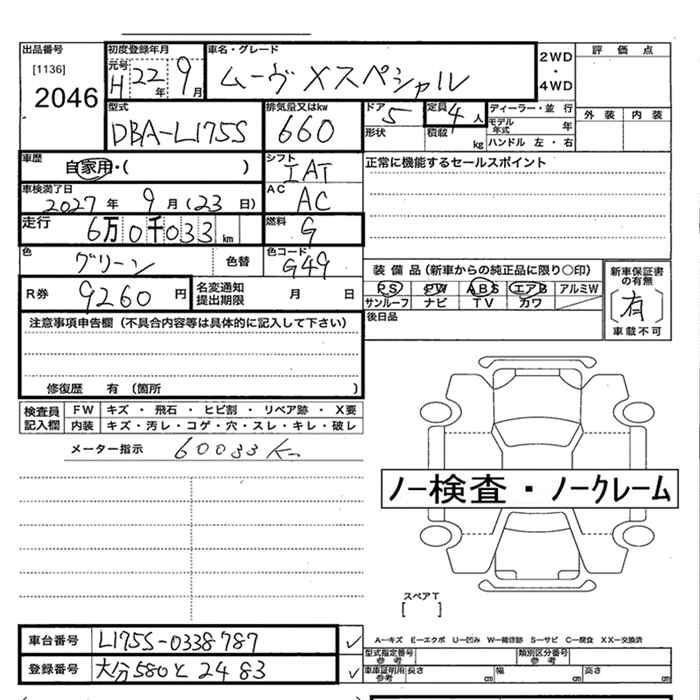 出品番号 初度登録年月 車名・グレード 評価点
[1136] 元号 H 22年 9月 ムーヴ Xスペシャル 2WD・4WD
2046
型式 排気量又はkw ドア 定員 ディーラー・並行 外装 内装
DBA-L175S 660 5 4人 モデル年式 年
形状 積載 kg ハンドル 左・右
車歴 自家用・( ) シフト IAT 正常に機能するセールスポイント
車検満了日 AC
2027年 9月(23日) AC
走行 6万0千033km 燃料 G
色 グリーン 色替 色コード G49
装備品(新車からの純正品に限り○印) 新車保証書の有無
R券 9260円 名変通知提出期限 月 日 PS PW ABS エアB アルミW [有]
サンルーフ ナビ TV カワ 車載不可
注意事項申告欄(不具合内容等は具体的に記入して下さい) 後日品
修復歴 有(箇所 )
検査員記入欄 FW キズ・飛石・ヒビ割・リペア跡・X要
内装 キズ・汚レ・コゲ・穴・スレ・キレ・破レ
メーター指示 60033K
ノー検査・ノークレーム
スペアT
[ ]
車台番号 L175S-0338787 ✓
A―キズ E―エクボ U―凹み W―補修跡 S―サビ C―腐食 XX―交換済
型式指定番号 参考 類別区分番号 参考
登録番号 大分580と2483 ✓ 車庫証明用 参考 長さ cm 幅 cm 高さ cm